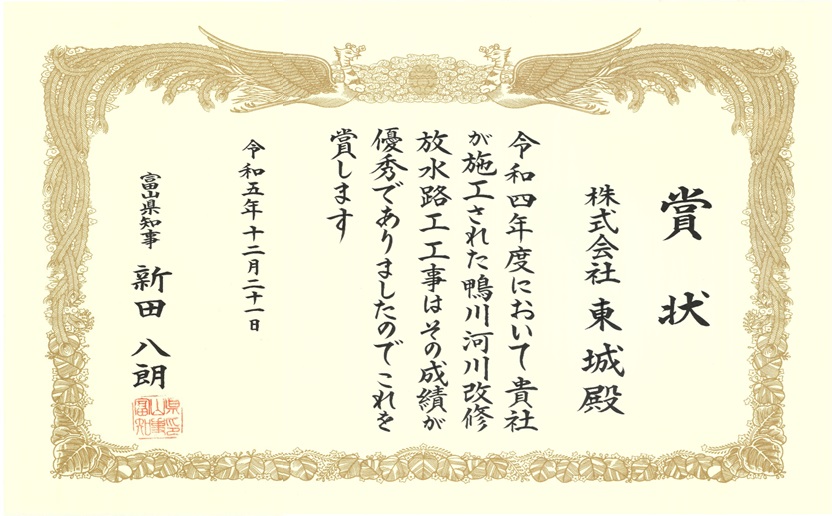 賞状
株式会社 東城殿
令和四年度において貴社
が施工された鴨川河川改修
放水路工工事はその成績が
優秀でありましたのでこれを
賞します
令和五年十二月二十一日
富山県知事 新田八朗
富山県知事印